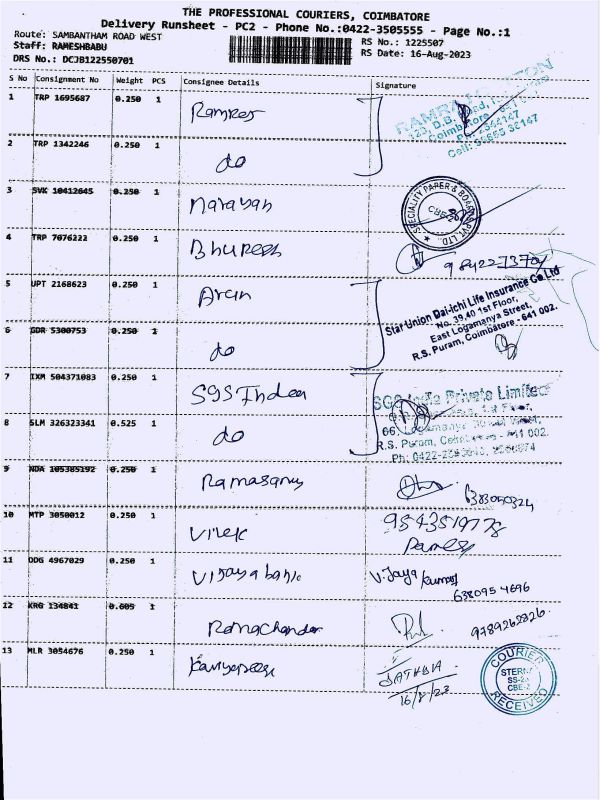 THE PROFESSIONAL COURIERS, COIMBATORE
Delivery Runsheet - PC2 - Phone No.:0422-3505555 - Page No.:1
Route: SAMBANTHAM ROAD WEST
RS No.: 1225507
Staff: RAMESHBABU
RS Date: 16-Aug-2023
DRS No.: DCJB122550701
S No Consignment No Weight PCS Consignee Details Signature
1 TRP 1695687 0.250 1 Ramres
Coimbatore
2 TRP 1342246 0.250 1 do
3 SVK 10412645 0.250 1 Narayan
SPECIALITY PAPER & BOARD PVT. LTD.
4 TRP 7076222 0.250 1 Bhuresh
5 UPT 2168623 0.250 1 Arun
Star Union Dai-ichi Life Insurance Co Ltd
No. 39,40 1st Floor,
East Logamanya Street,
R.S. Puram, Coimbatore - 641 002.
6 GDR 5300753 0.250 1 do
7 IXM 504371083 0.250 1 SGS India
SGS India Private Limited
8 SLM 326323341 0.525 1 do
R.S. Puram, Coimbatore - 641 002.
9 NDA 105385192 0.250 1 Ramasamy
10 MTP 3050012 0.250 1 Vivek
11 ODG 4967029 0.250 1 Vijaya bank
Vijaya Kumar
638095 4696
12 KRG 134841 0.605 1 Ramachandar
9789262826
13 MLR 3054676 0.250 1
SATHYA
16/8/23
COURIER
STERN
CBE-2
RECEIVED